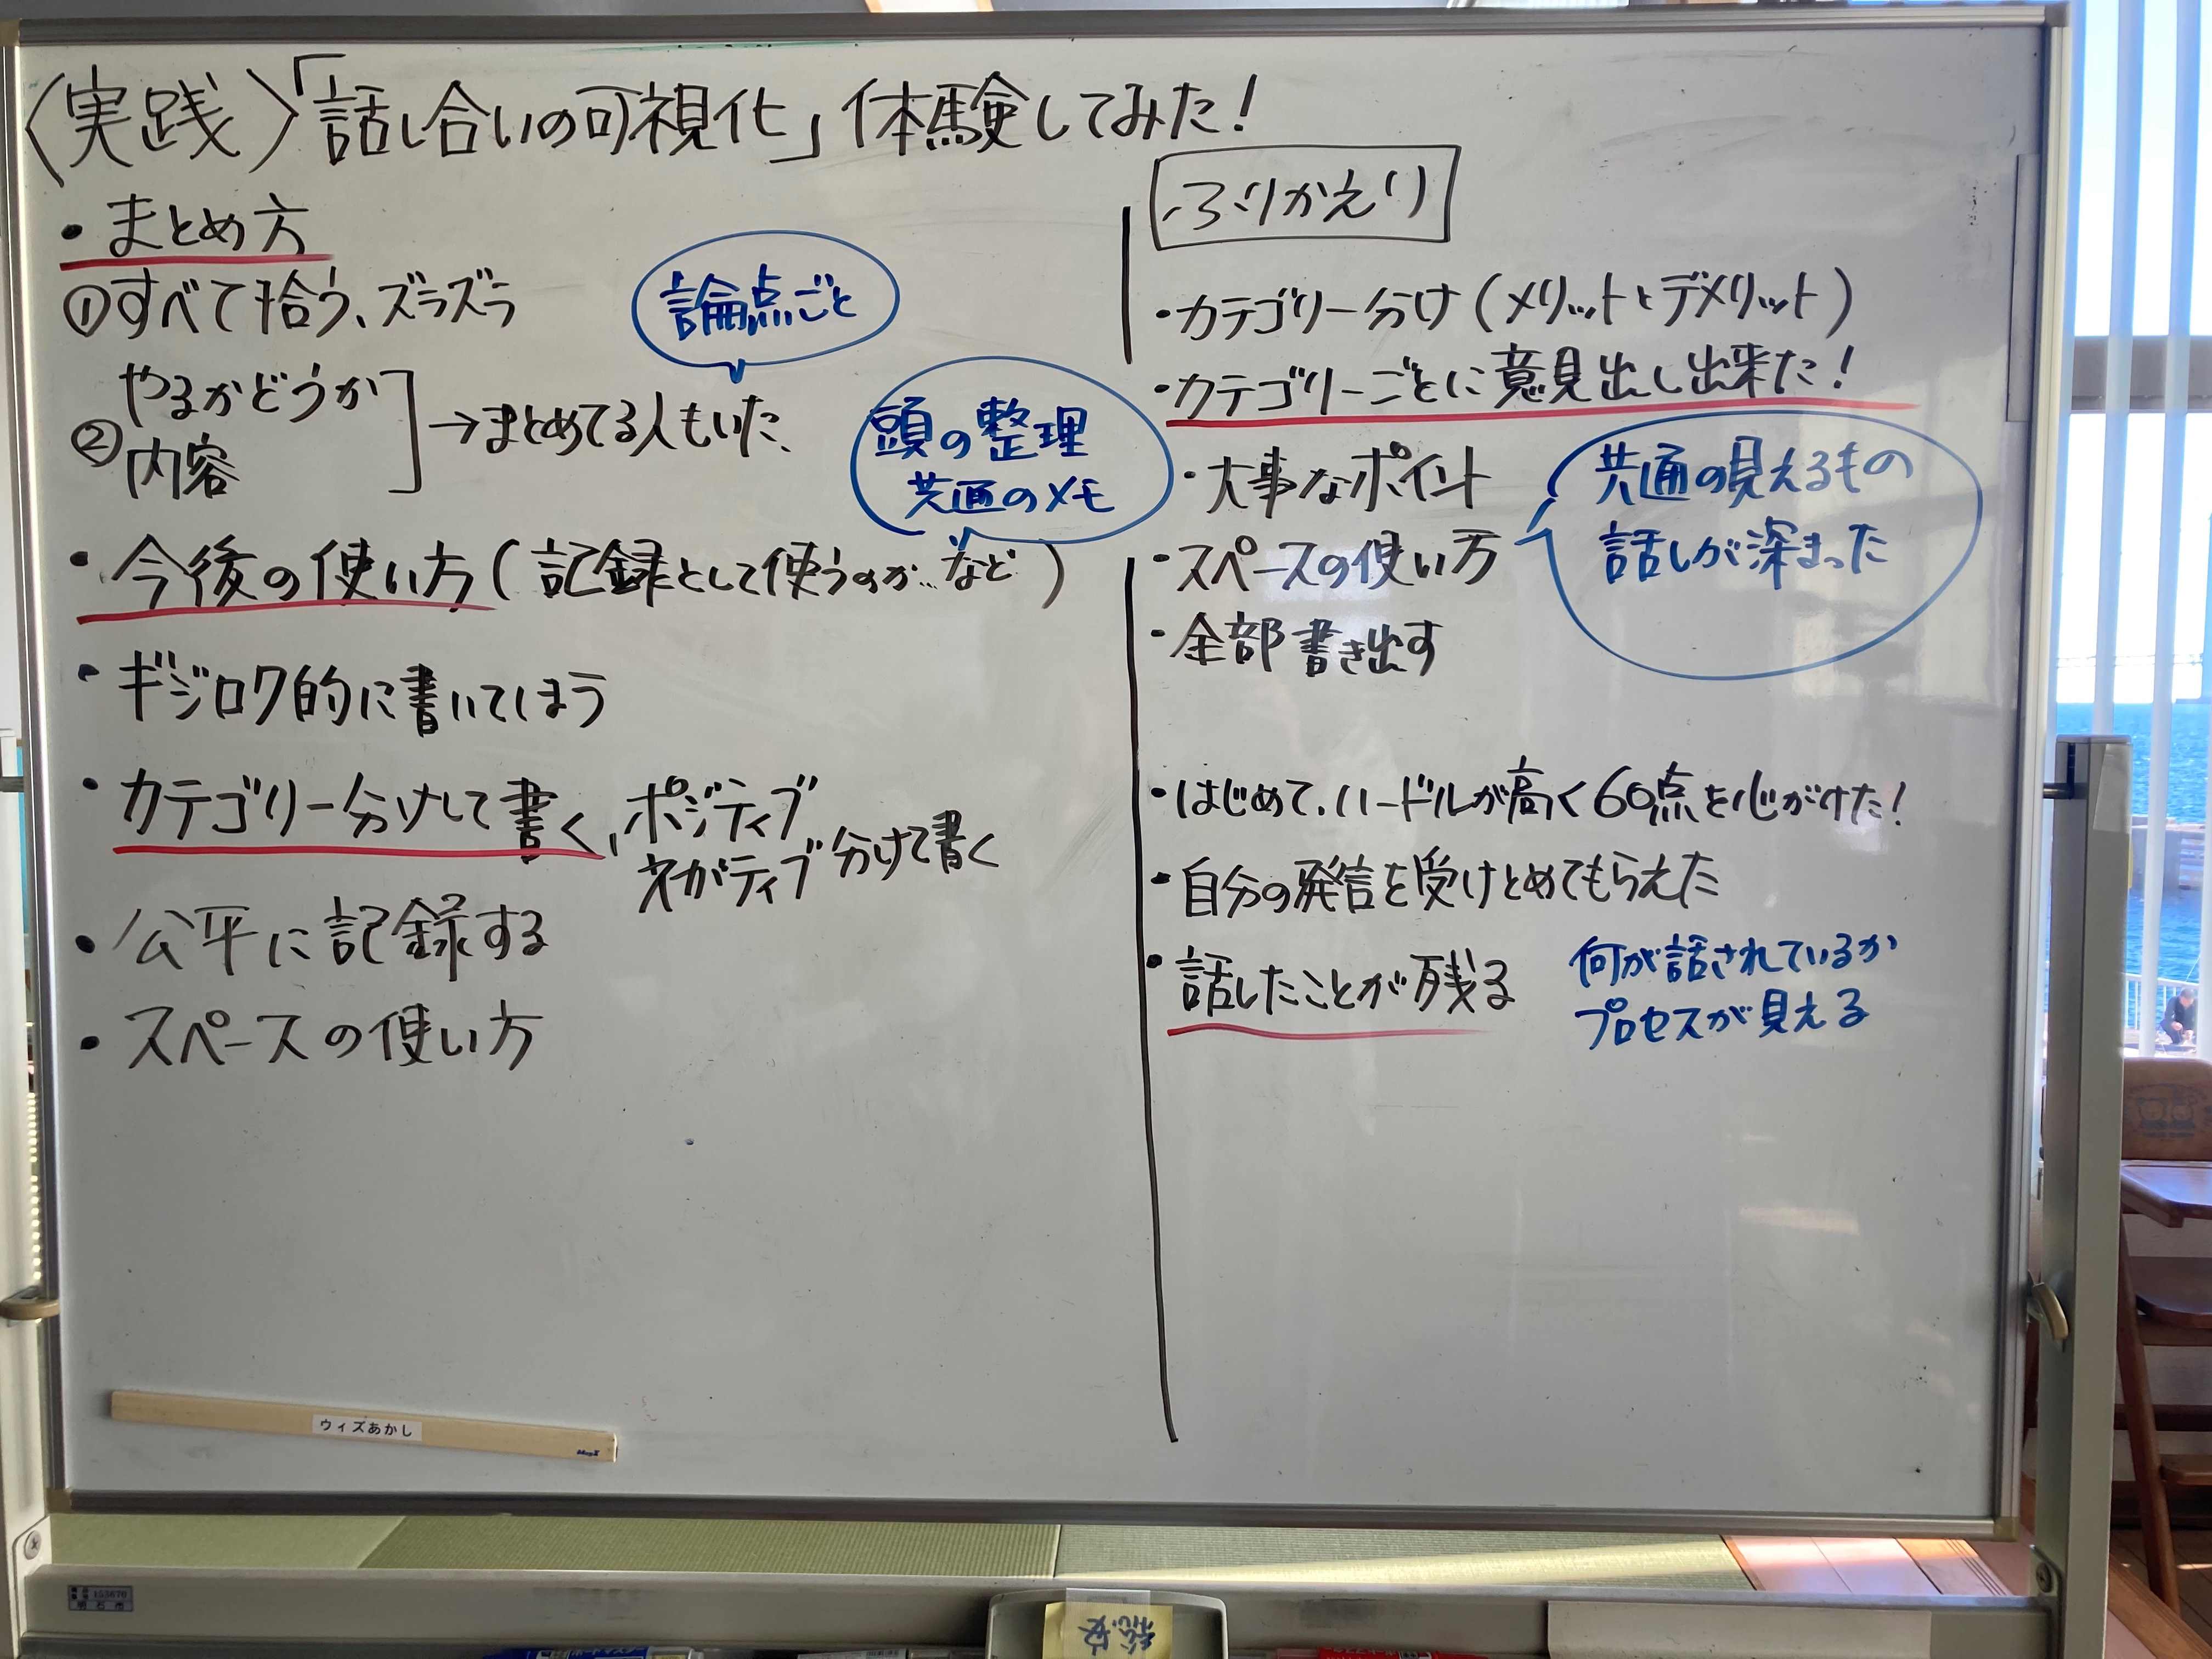 〈実践〉「話し合いの可視化」体験してみた!
・まとめ方
①すべて拾う、ズラズラ
論点ごと
②やるかどうか
内容
→まとめてる人もいた、
頭の整理
共通のメモ
・今後の使い方(記録として使うのか…など)
・ギジロク的に書いてしまう
・カテゴリー分けして書く、ポジティブ
ネガティブ 分けて書く
・公平に記録する
・スペースの使い方
ふりかえり
・カテゴリー分け(メリットとデメリット)
・カテゴリーごとに意見出し出来た!
・大事なポイント
・スペースの使い方
共通の見えるもの
話しが深まった
・全部書き出す
・はじめて、ハードルが高く60点を心がけた!
・自分の発言を受けとめてもらえた
・話したことが残る
何が話されているか
プロセスが見える
ウィズあかし